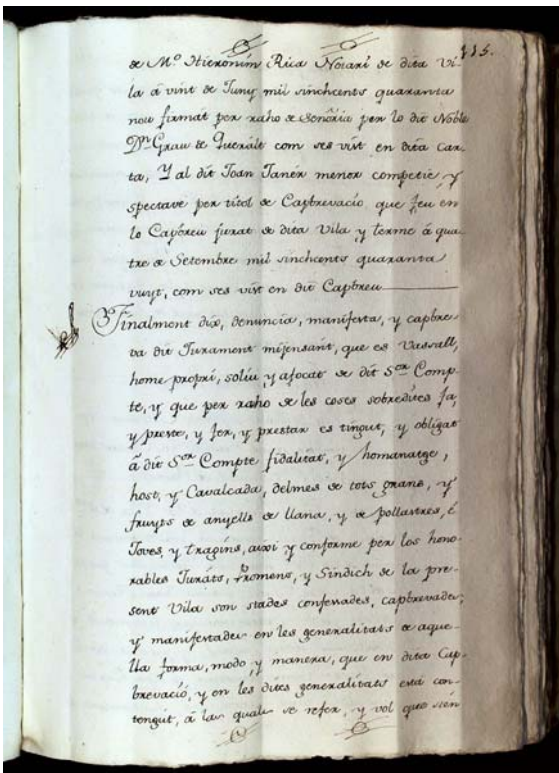 115.
de M.º Hieronim Rica Notari de dita Vi-
la á vint de Juny mil sinchcents quaranta
nou firmat per raho de Señoria per lo dit Noble
D.ⁿ Grau de Queralt com ses vist en dita car-
ta, Y al dit Joan Janér menor competie, y
spectave per titol de Capbrevació, que feu en
lo Capbreu jurat de dita Vila y terme á qua-
tre de Setembre mil sinchcents quaranta
vuyt, com ses vist en dit Capbreu
Finalment dix, denuncia, manifesta, y capbre-
va dit Jurament mijensant, que es Vassall,
home propri, soliu, y afocat de dit S.ᵒʳ Comp-
te, y que per raho de les coses sobredites fa,
y preste, y fer, y prestar es tingut, y obligat
á dit S.ᵒʳ Compte fidalitat, y homanatge,
host, y Cavalcada, delmes de tots grans, y
fruyts de anyells de llana, y de pollastres, é
Joves, y tragins, aixi y conforme per los hono-
rables Jurats, Promens, y Sindich de la pre-
sent Vila son stades confessades, capbrevades,
y manifestades en les generalitats de aque-
lla forma, modo, y manera, que en dita Cap-
brevació, y en les dites generalitats está con-
tengut, á las quals se refer, y vol que sien